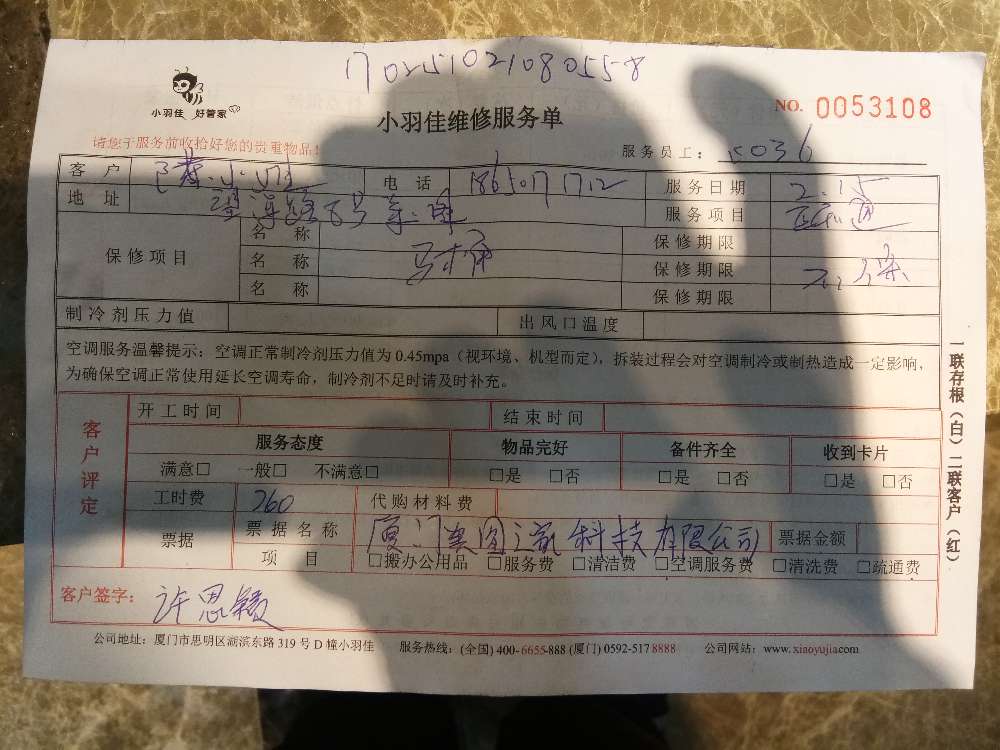 17025102108055­8
小羽佳 好管家
小羽佳维修服务单
NO. 0053108
请您于服务前收拾好您的贵重物品！
服务员工：
客户 电话 服务日期 2.15
地址 服务项目
保修项目 名称 保修期限
名称 马桶 保修期限
名称 保修期限
制冷剂压力值 出风口温度
空调服务温馨提示：空调正常制冷剂压力值为 0.45mpa（视环境、机型而定），拆装过程会对空调制冷或制热造成一定影响，
为确保空调正常使用延长空调寿命，制冷剂不足时请及时补充。
客户评定
开工时间 结束时间
服务态度 物品完好 备件齐全 收到卡片
满意□ 一般□ 不满意□ □是 □否 □是 □否 □是 □否
工时费 260 代购材料费
票据 票据名称 厦门 科技有限公司 票据金额
项目 □搬办公用品 □服务费 □清洁费 □空调服务费 □清洗费 □疏通费
客户签字： 许思颖
公司地址：厦门市思明区湖滨东路 319 号 D 幢小羽佳 服务热线：(全国) 400-6655-888 (厦门) 0592-517 8888 公司网站：www.xiaoyujia.com
一联存根（白）二联客户（红）